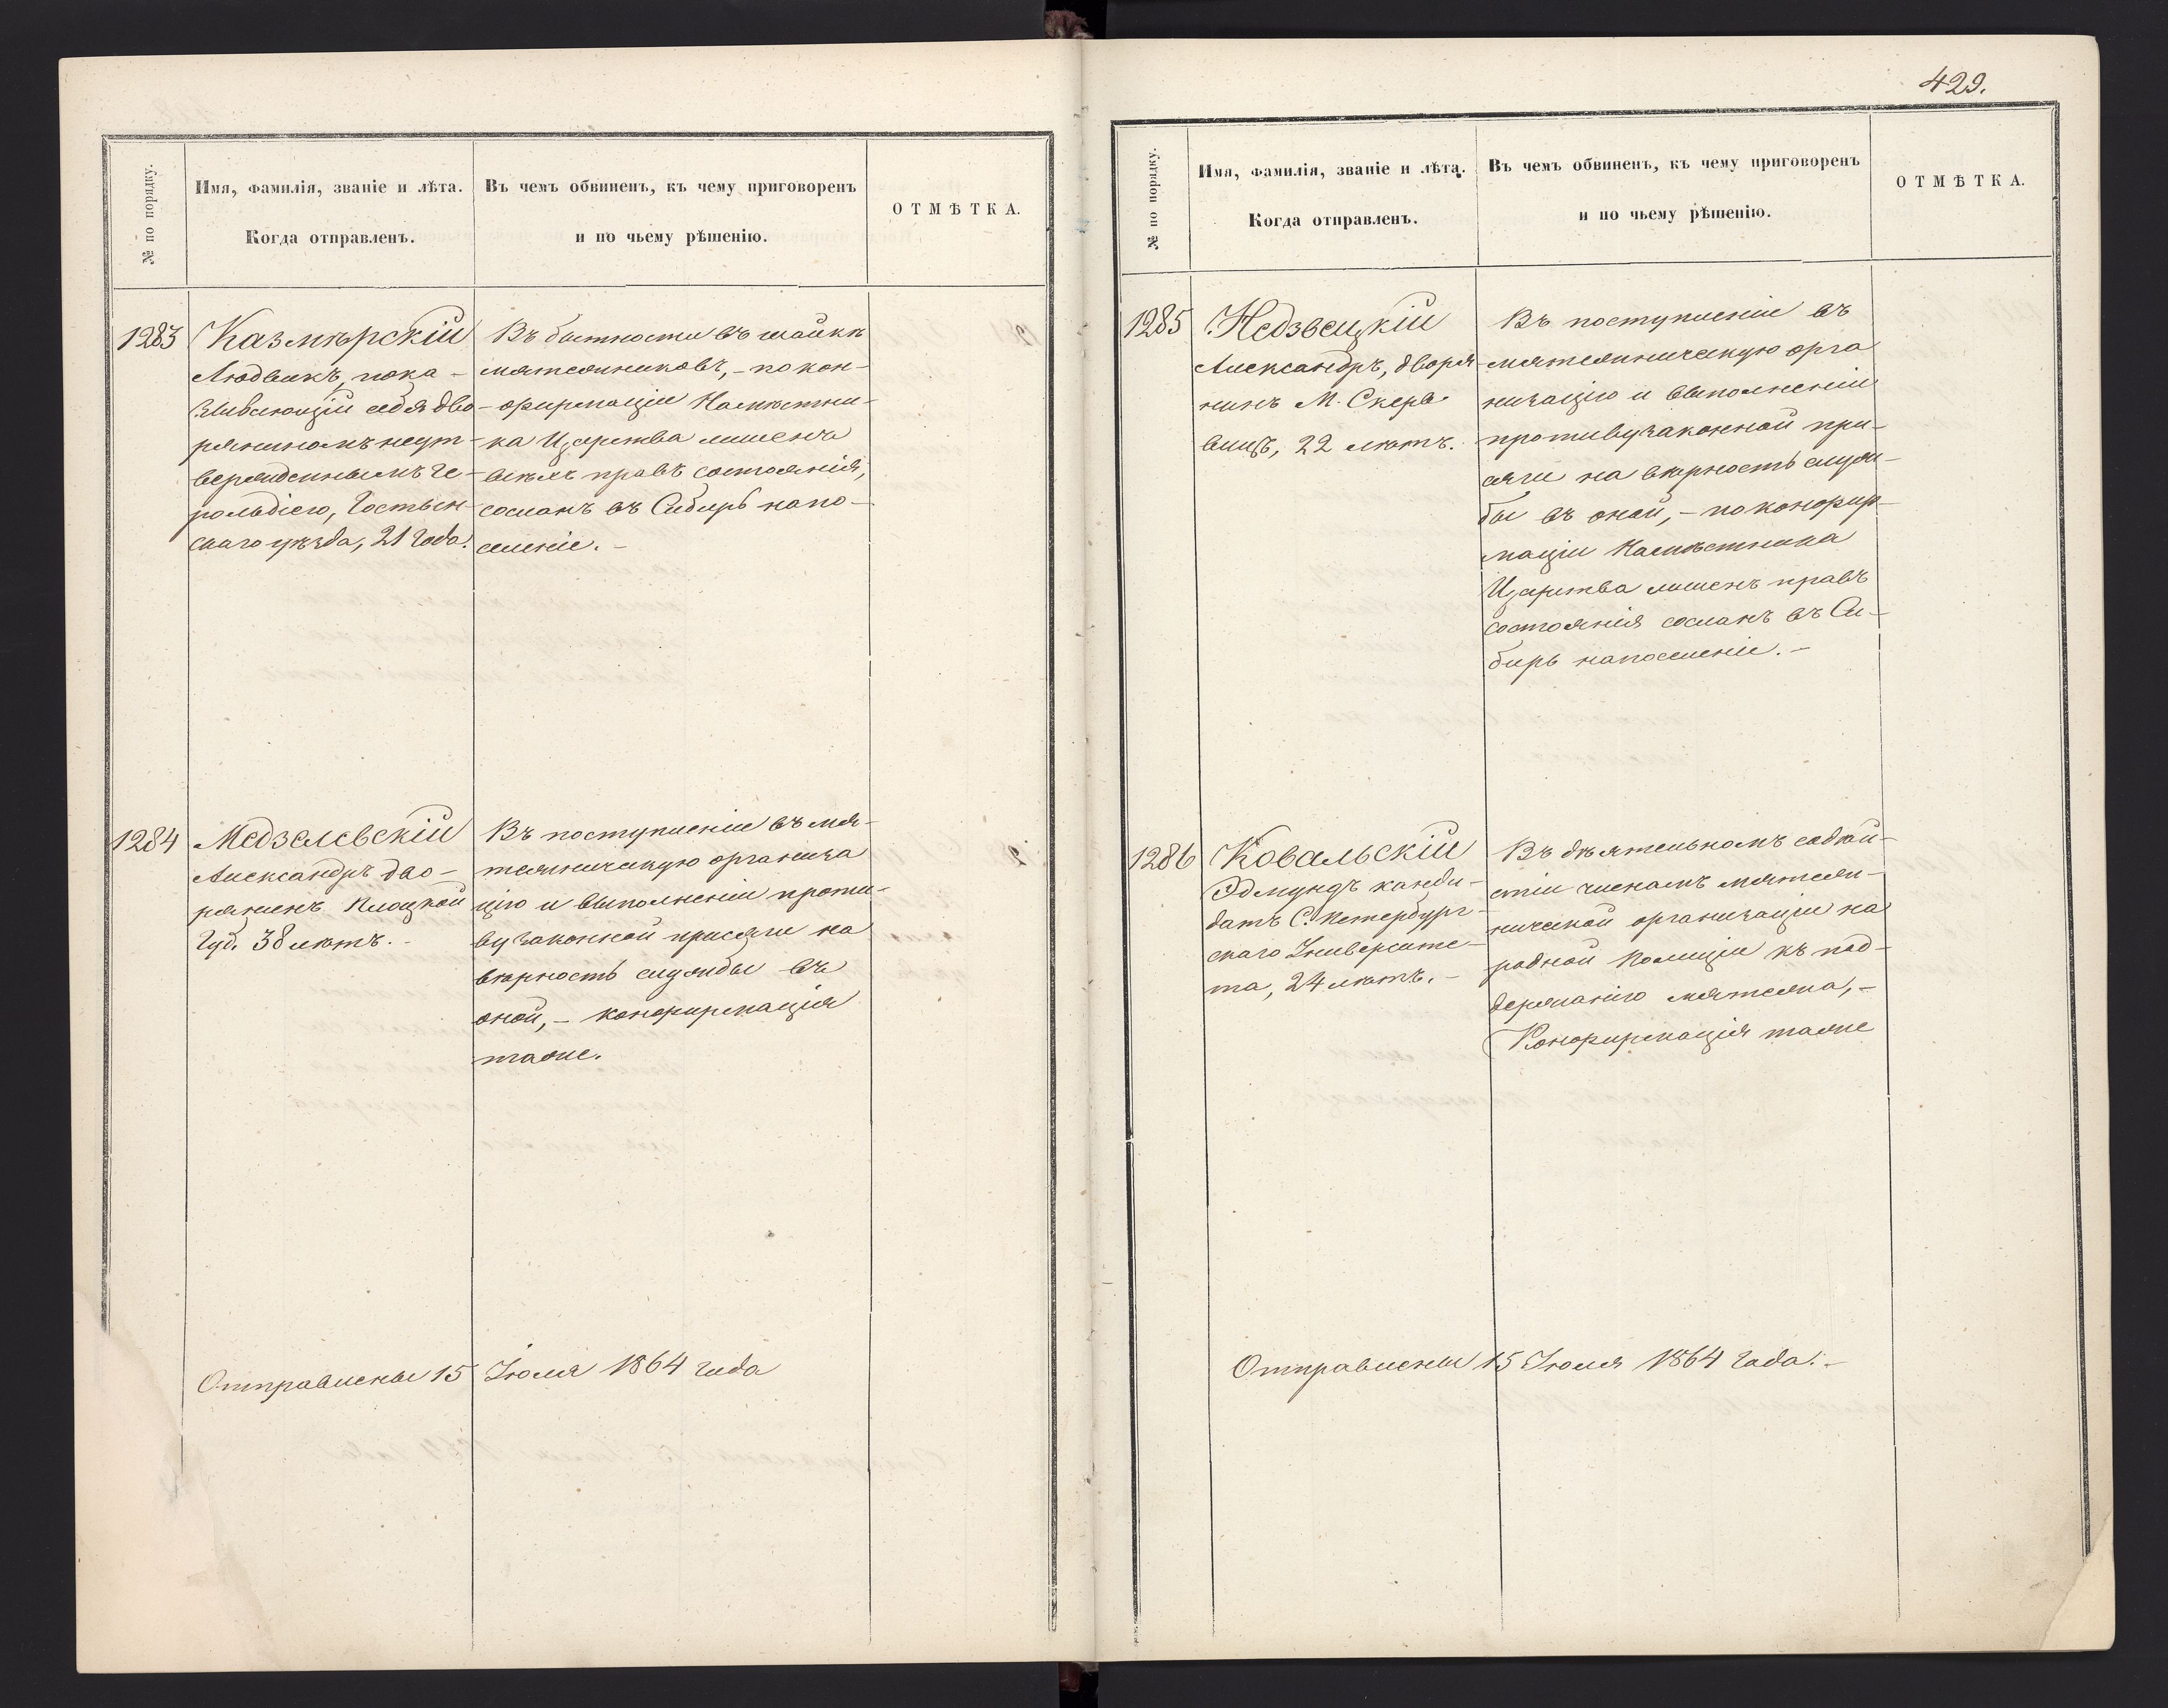 № по порядку.
Имя, фамилія, званіе и лѣта.
Когда отправленъ.
Въ чемъ обвиненъ, къ чему приговоренъ
и по чьему рѣшенію.
ОТМѢТКА.
1283
Казмѣрскій
Людвикъ, пока-
зывающій себя дво-
ряниномъ неут-
вержденнымъ Ге-
рольдіею, Гостын-
скаго уѣзда, 21 года.
Въ бытности въ шайкѣ
мятежниковъ, - по кон-
фирмаціи Намѣстни-
ка Царства лишенъ
всѣхъ правъ состоянія,
сосланъ въ Сибирь на по-
селеніе. -
1284
Медзелевскій
Александръ дво-
рянинъ Плоцкой
Губ. 38 лѣтъ. -
Въ поступленіи въ мя-
тежническую организа
цію и выполненіи проти-
ву законной присяги на
вѣрность службы въ
оной, - конфирмація
таже.
Отправлены 15 Іюля 1864 года
429.
№ по порядку.
Имя, фамилія, званіе и лѣта.
Когда отправленъ.
Въ чемъ обвиненъ, къ чему приговоренъ
и по чьему рѣшенію.
ОТМѢТКА.
1285
Недзвецкій
Александръ, дворя
нинъ М. Скер
вицъ, 22 лѣтъ.
Въ поступленіи въ
мятежническую орга
низацію и выполненіи
противузаконной при-
сяги на вѣрность служ-
бы въ оной, - по конфир-
маціи Намѣстника
Царства лишенъ правъ
состоянія сосланъ въ Си-
бирь на поселеніе. -
1286
Ковальскій
Эдмундъ канди-
датъ С. Петербург-
скаго Университе-
та, 24 лѣтъ. -
Въ дѣятельномъ содѣй-
ствіи членамъ мятеж-
нической организаціи на
родной Полиціи къ под-
держанію мятежа, -
Конфирмація таже
Отправлены 15 Іюля 1864 года. -